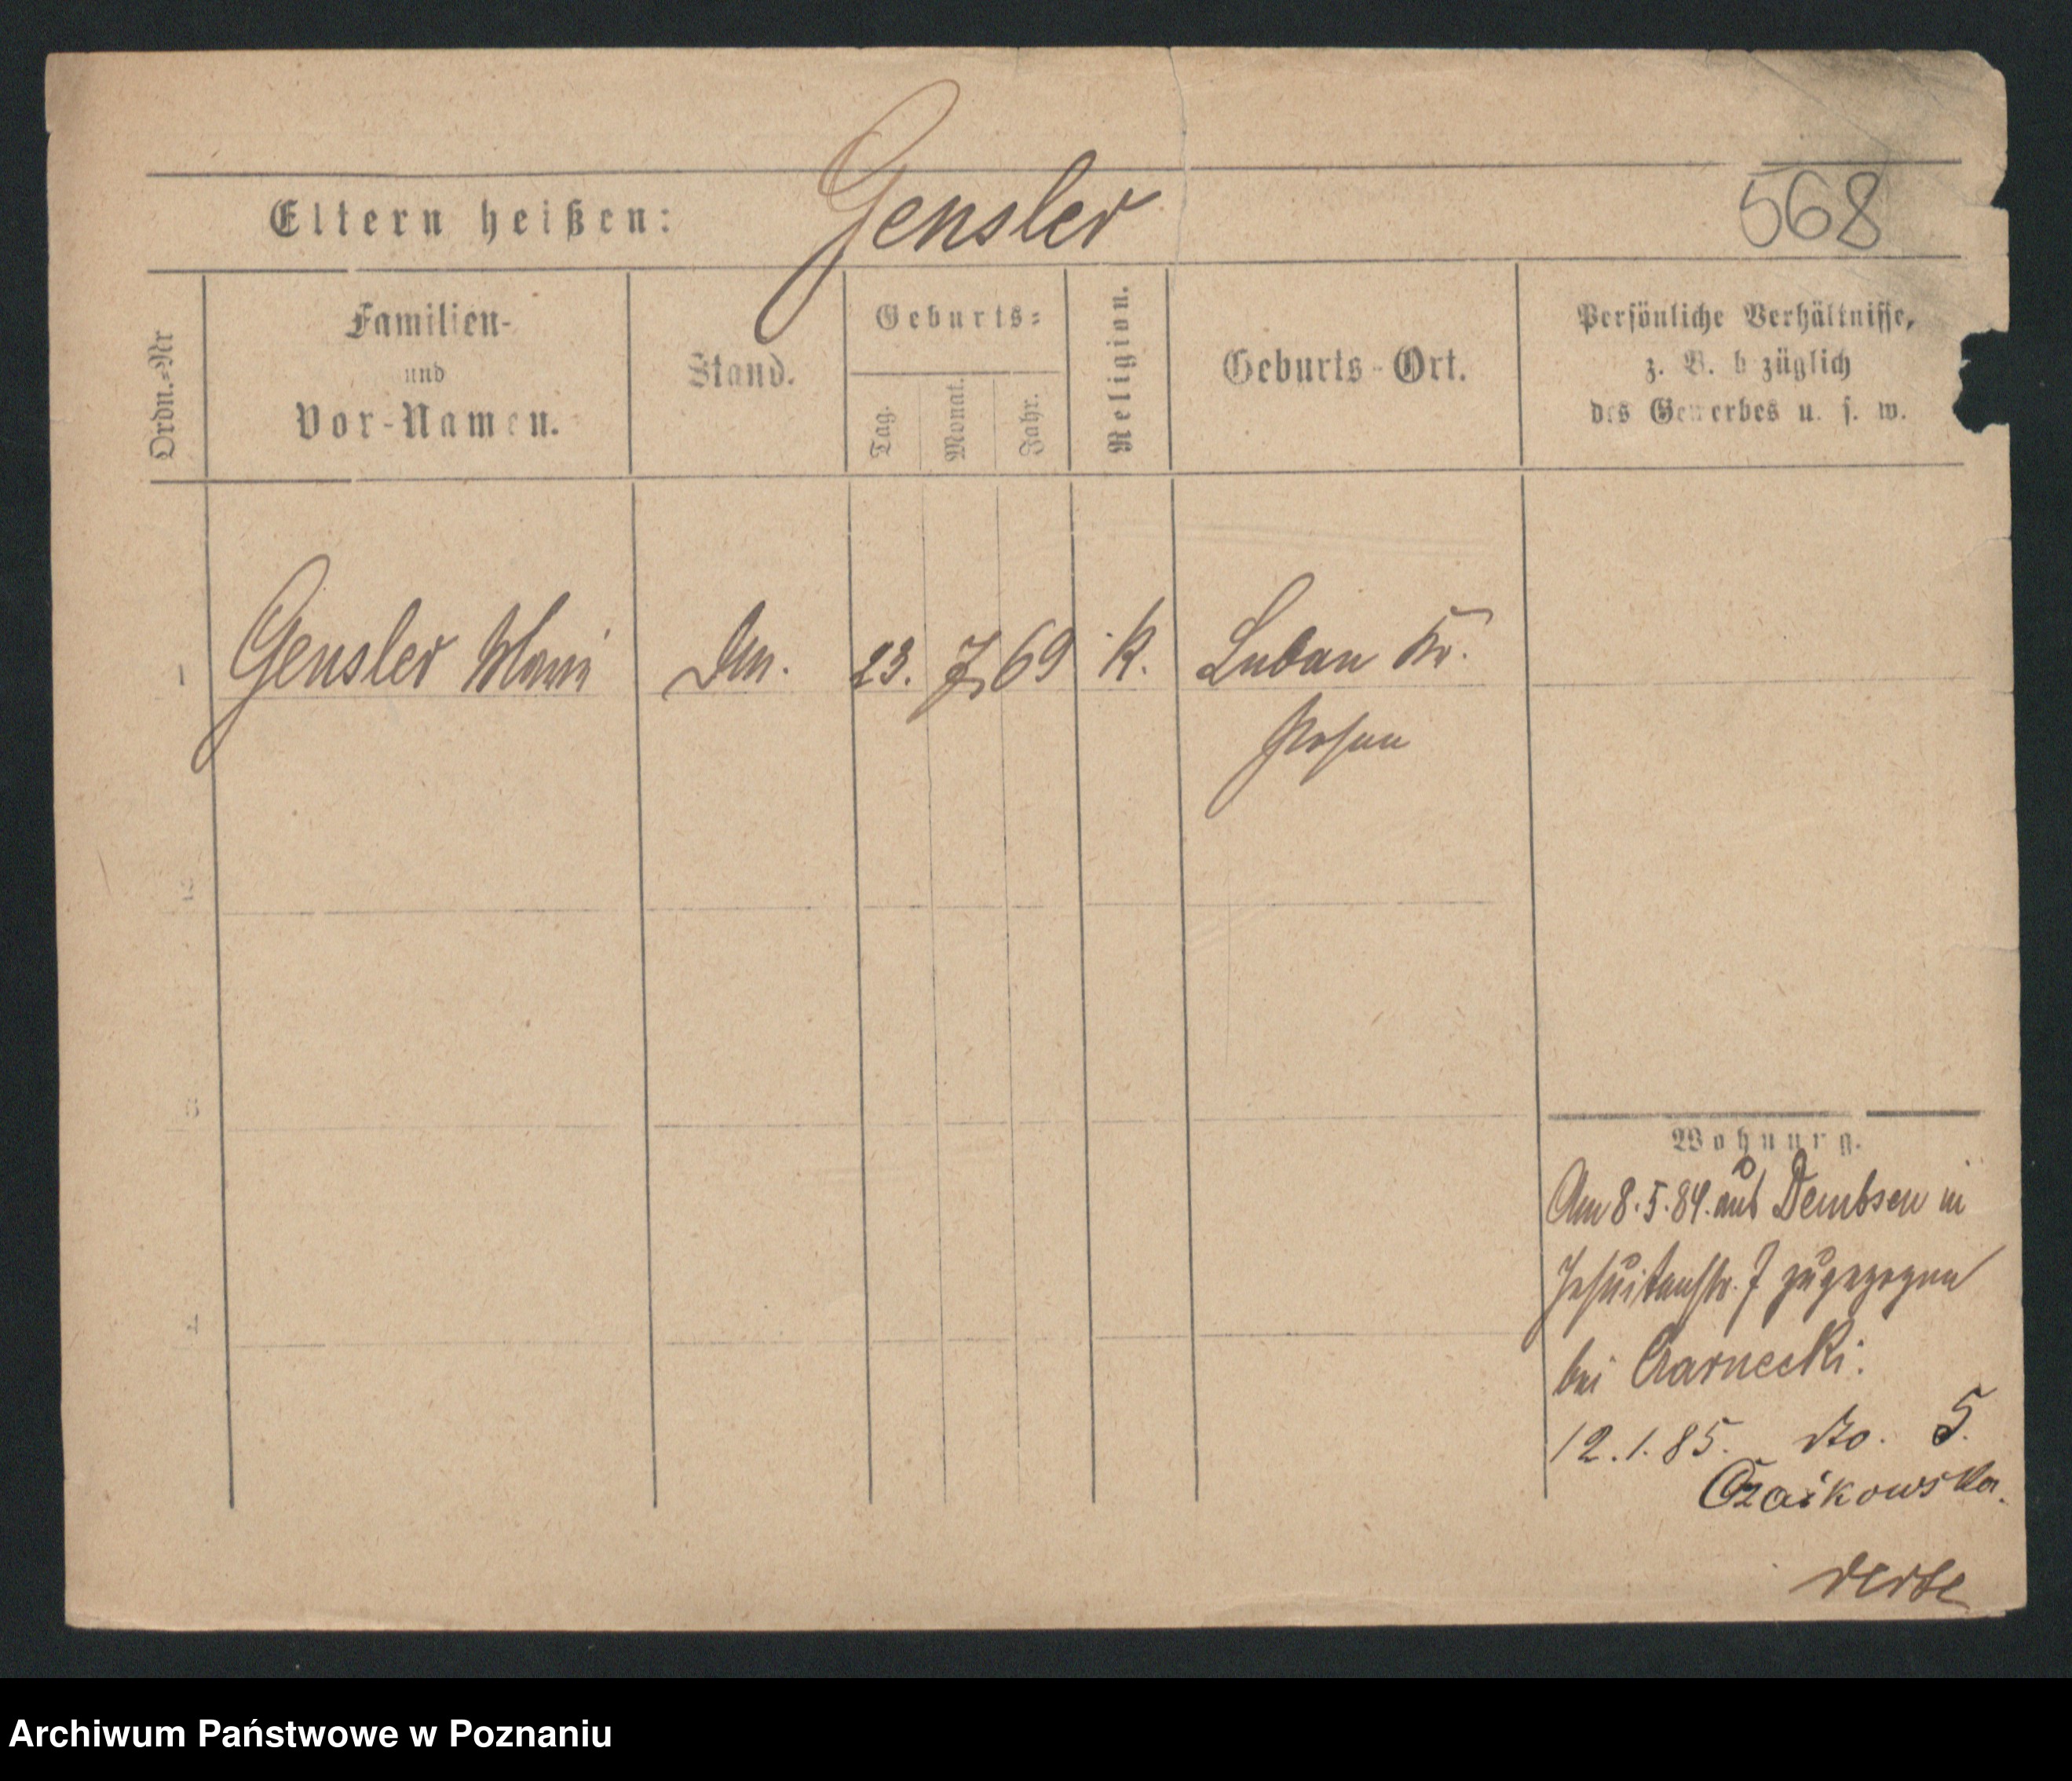 Gensler
568
Eltern heißen:
Ordn.=Nr
Familien-
und
Vor-Namen.
Stand.
Geburts=
Tag.
Monat.
Jahr.
Religion.
Geburts-Ort.
Persönliche Verhältnisse,
z. B. b züglich
des Gewerbes u. s. w.
1
Gensler Marie
23. 7 69
K.
Luban Kr.
Posen
2
3
4
Wohnung.
Am 8.5.84. aus Dembsen in
Jesuitenstr. 7 zugezogen
bei Czarnecki.
12.1.85. do. 5.
Czaikowska.